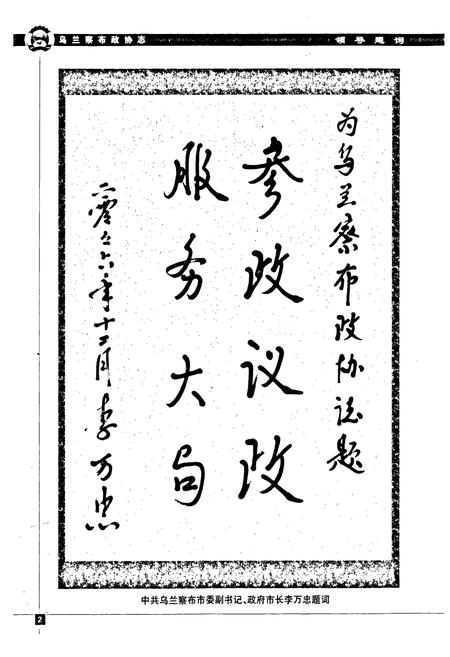 乌兰察布政协志
领导题词
为乌兰察布政协志题
参政议政
服务大局
二零零六年十二月 李万忠
中共乌兰察布市委副书记、政府市长李万忠题词
2